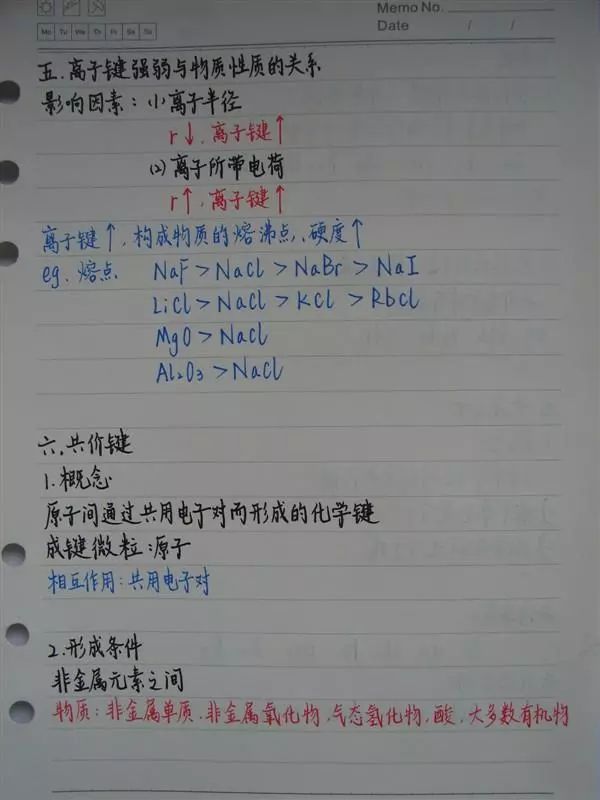 Memo No.
Date / /
Mo Tu We Th Fr Sa Su
五.离子键强弱与物质性质的关系
影响因素:(1)离子半径
r↓,离子键↑
(2)离子所带电荷
r↑,离子键↑
离子键↑,构成物质的熔沸点、硬度↑
eg.熔点 NaF>NaCl>NaBr>NaI
LiCl>NaCl>KCl>RbCl
MgO>NaCl
Al₂O₃>NaCl
六.共价键
1.概念
原子间通过共用电子对而形成的化学键
成键微粒:原子
相互作用:共用电子对
2.形成条件
非金属元素之间
物质:非金属单质.非金属氧化物,气态氢化物,酸,大多数有机物